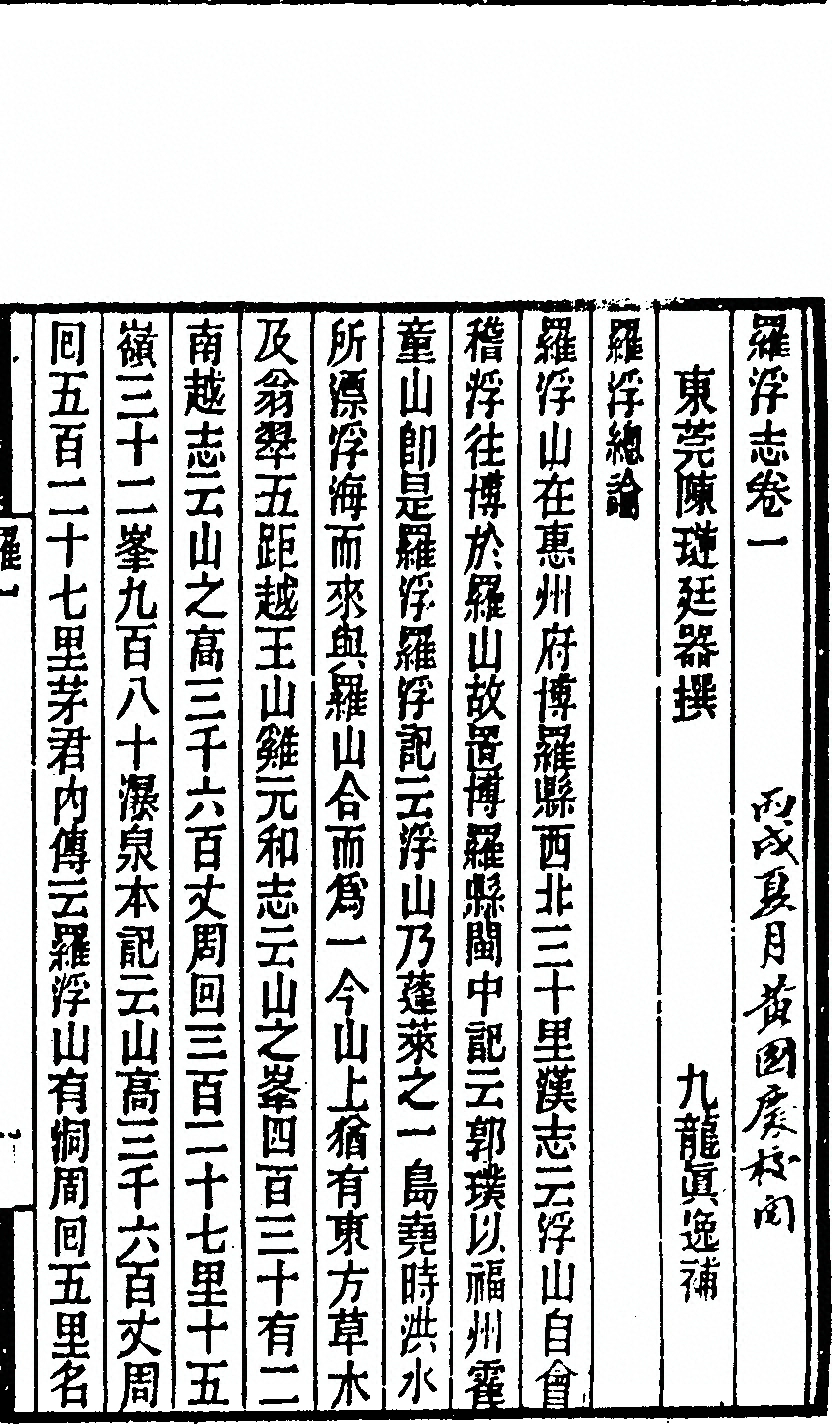 羅浮志卷一
丙戌夏月黃國慶校閱
東莞陳璉廷器撰
九龍眞逸補
羅浮總論
羅浮山在惠州府博羅縣西北三十里漢志云浮山自會
稽浮往博於羅山故置博羅縣閩中記云郭璞以福州霍
童山卽是羅浮羅浮記云浮山乃蓬萊之一島堯時洪水
所漂浮海而來與羅山合而爲一今山上猶有東方草木
及翁翠五距越王山雞元和志云山之峯四百三十有二
南越志云山之高三千六百丈周回三百二十七里十五
嶺三十二峯九百八十瀑泉本記云山高三千六百丈周
回五百二十七里茅君內傳云羅浮山有洞周回五里名
羅一